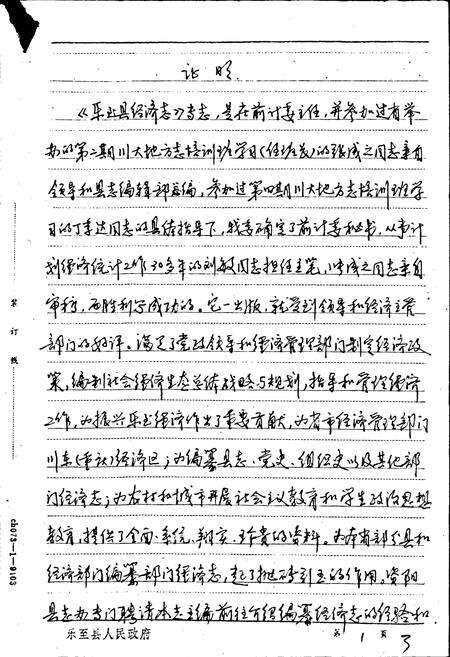 证明
《乐至县经济志》专志,是在前计委主任,并参加过省举
办的第二期川大地方志培训班学习(任班长)的张成之同志亲自
领导和县志编辑部主编,参加过第四期川大地方志培训班学
习的丁李达同志的具体指导下,我委确定了前计委秘书,从事计
划经济统计工作30多年的刘敏同志担任主笔,张成之同志亲自
审稿,而胜利写成功的。它一出版,就受到领导和经济主管
部门的好评。满足了党政领导和经济管理部门制定经济政
策,编制社会经济生态总体战略与规划,指导和管理经济
工作,为振兴乐至经济作出了重要贡献,为省市经济管理部门
川东(重庆)经济区;为编纂县志、党史、组织史以及其他部
门经济志;为农村和城市开展社会主义教育和学生政治思想
教育,提供了全面、系统、翔实、珍贵的资料。为本省部分县和
经济部门编纂部门经济志,起了抛砖引玉的作用。资阳
县志办专门聘请本志主编前往介绍编纂经济志的经验和
乐至县人民政府
第1页
3
装订线
cb073—1—9103